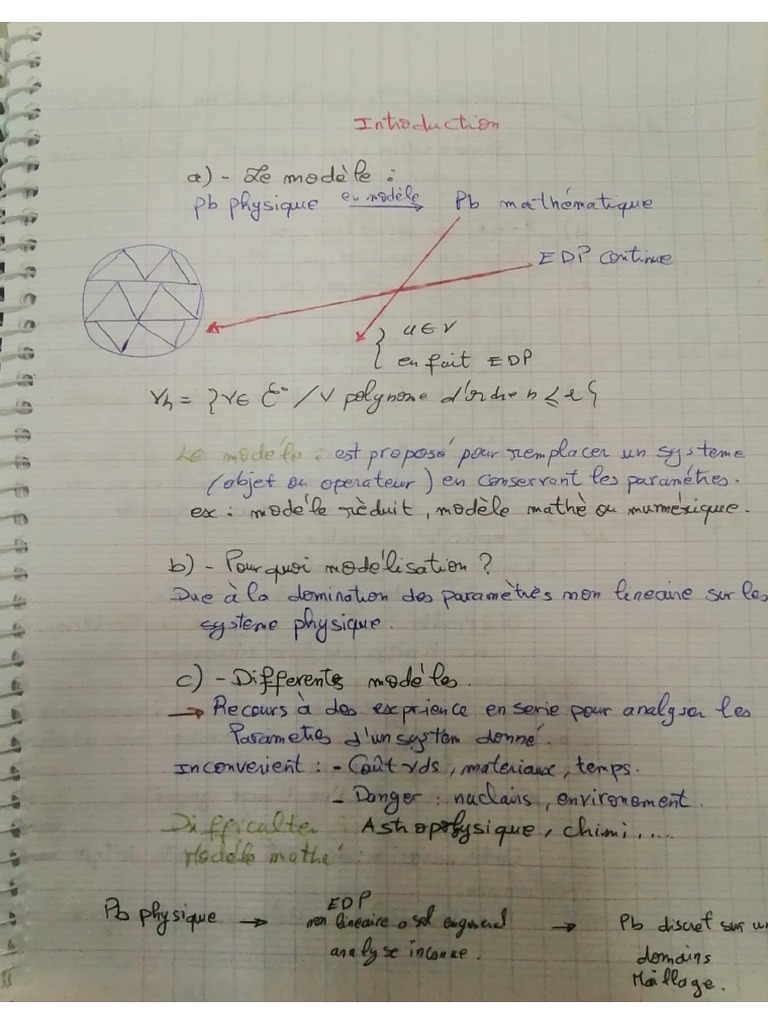 Introduction
a) - Le modèle :
pb physique en modèle Pb mathématique
EDP continue
{ u ∈ V
en fait EDP
Vh = }v ∈ / v polynome d'ordre n ≤ {
Le modéle : est proposé pour remplacer un systeme
(objet ou operateur) en conservant les paramétres.
ex : modéle rèduit, modèle mathè ou numérique.
b) - Pourquoi modélisation ?
Due à la domination des paramètres non lineaire sur les
systeme physique.
c) - Differents modéles.
→ Recours à des exprience en serie pour analyser les
Parametres d'un system donné.
Inconvenient : - Coût , materiaux, temps.
- Danger : nuclairs, environement.
Difficulter Astropohysique, chimi, ....
Modéle mathé :
Pb physique → EDP → Pb discret sur un
non lineaire sol
analyse inconue. domains
Maillage.